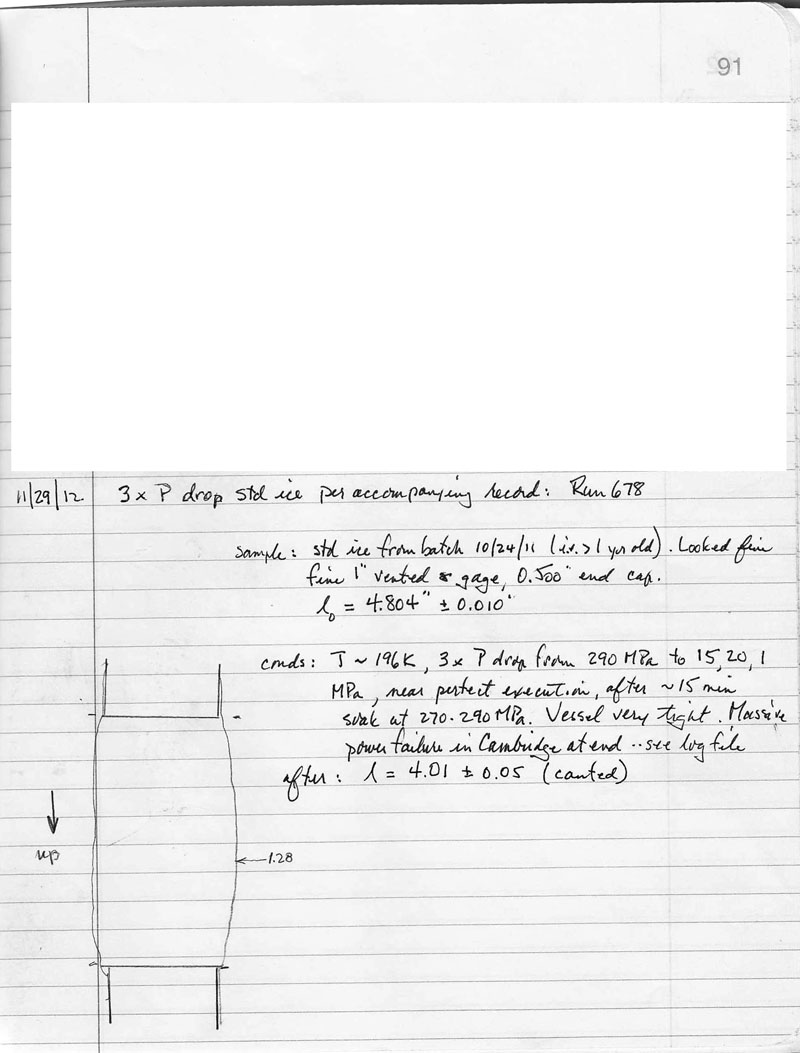 91
11/29/12 3 x P drop std ice per accompanying record: Run 678
sample: std ice from batch 10/24/11 (i.e. > 1 yr old). Looked fine
fine 1" vented gage, 0.500" end cap.
l₀ = 4.804" ± 0.010"
conds: T ~ 196K, 3x P drop from 290 MPa to 15, 20, 1
MPa, near perfect execution, after ~ 15 min
soak at 270-290 MPa. Vessel very tight. Massive
power failure in Cambridge at end .. see log file
after: l = 4.01 ± 0.05 (canted)
up
1.28